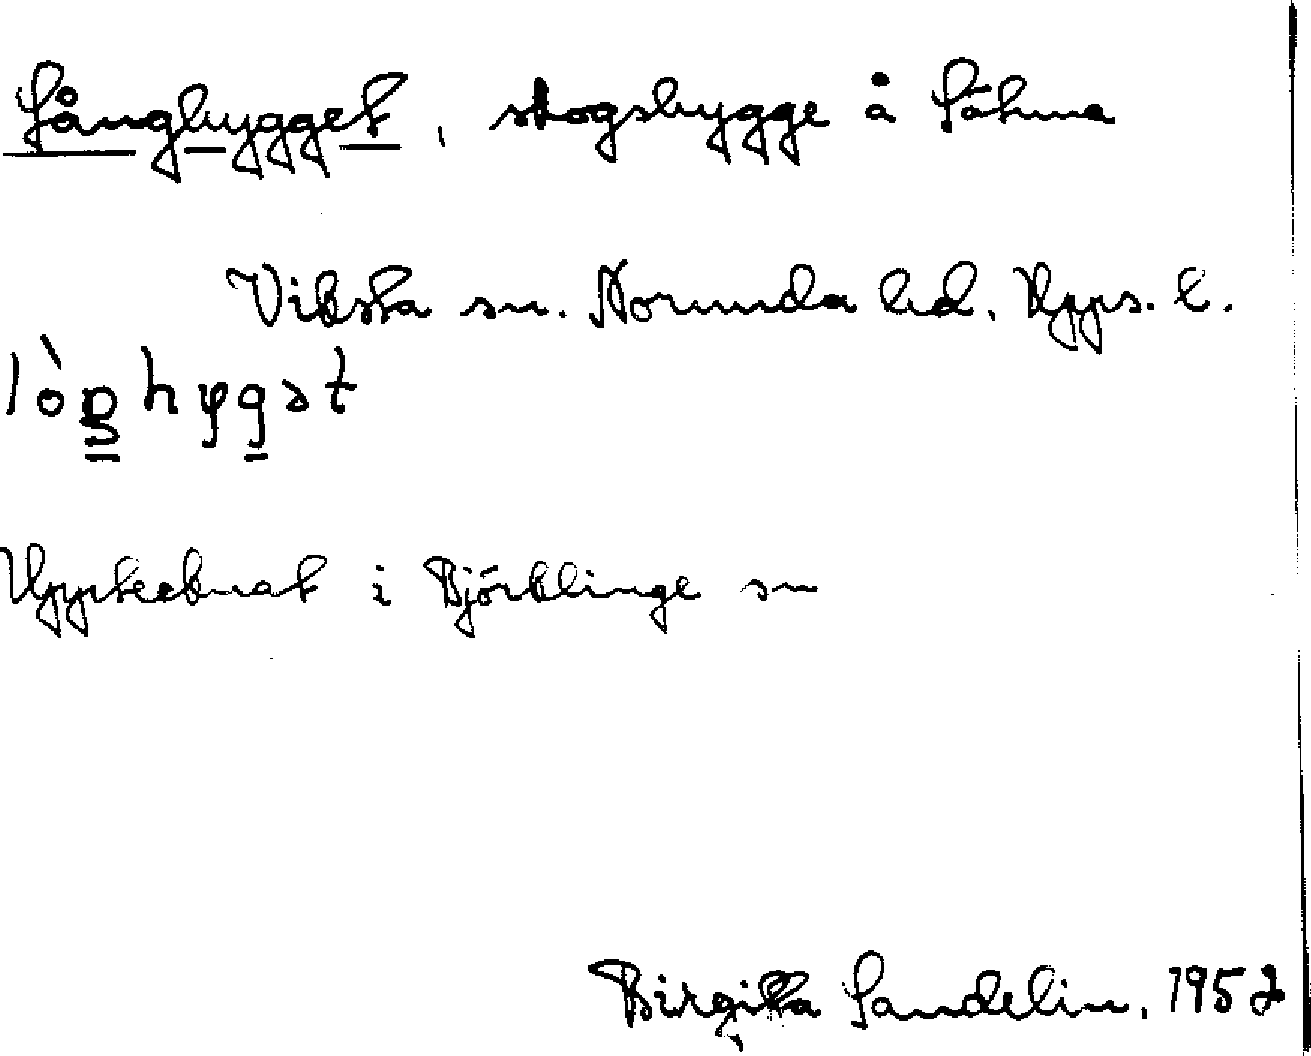 Långhygget, skogshygge å
Viksta sn. Norunda hd. Upps. l.
lòŋhygət
Upptecknat i Björklinge sn
Birgitta Sandelin, 1952